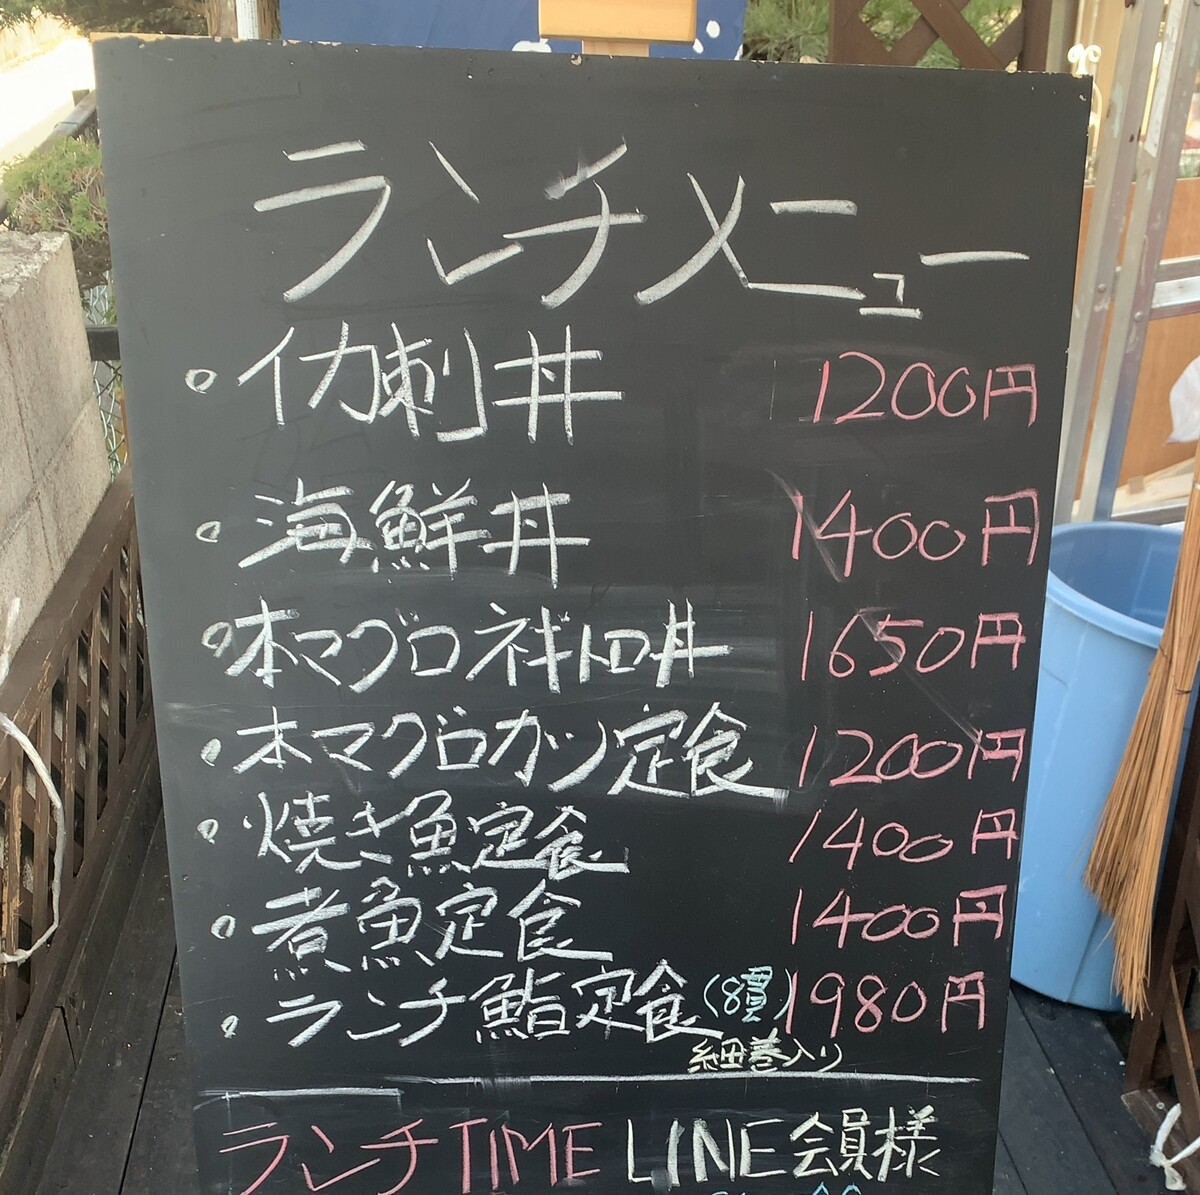 ランチメニュー
・イカ刺丼 1200円
・海鮮丼 1400円
・本マグロネギトロ丼 1650円
・本マグロカツ定食 1200円
・焼き魚定食 1400円
・煮魚定食 1400円
・ランチ鮨定食(8貫) 1980円
細巻入り
ランチTIME LINE会員様